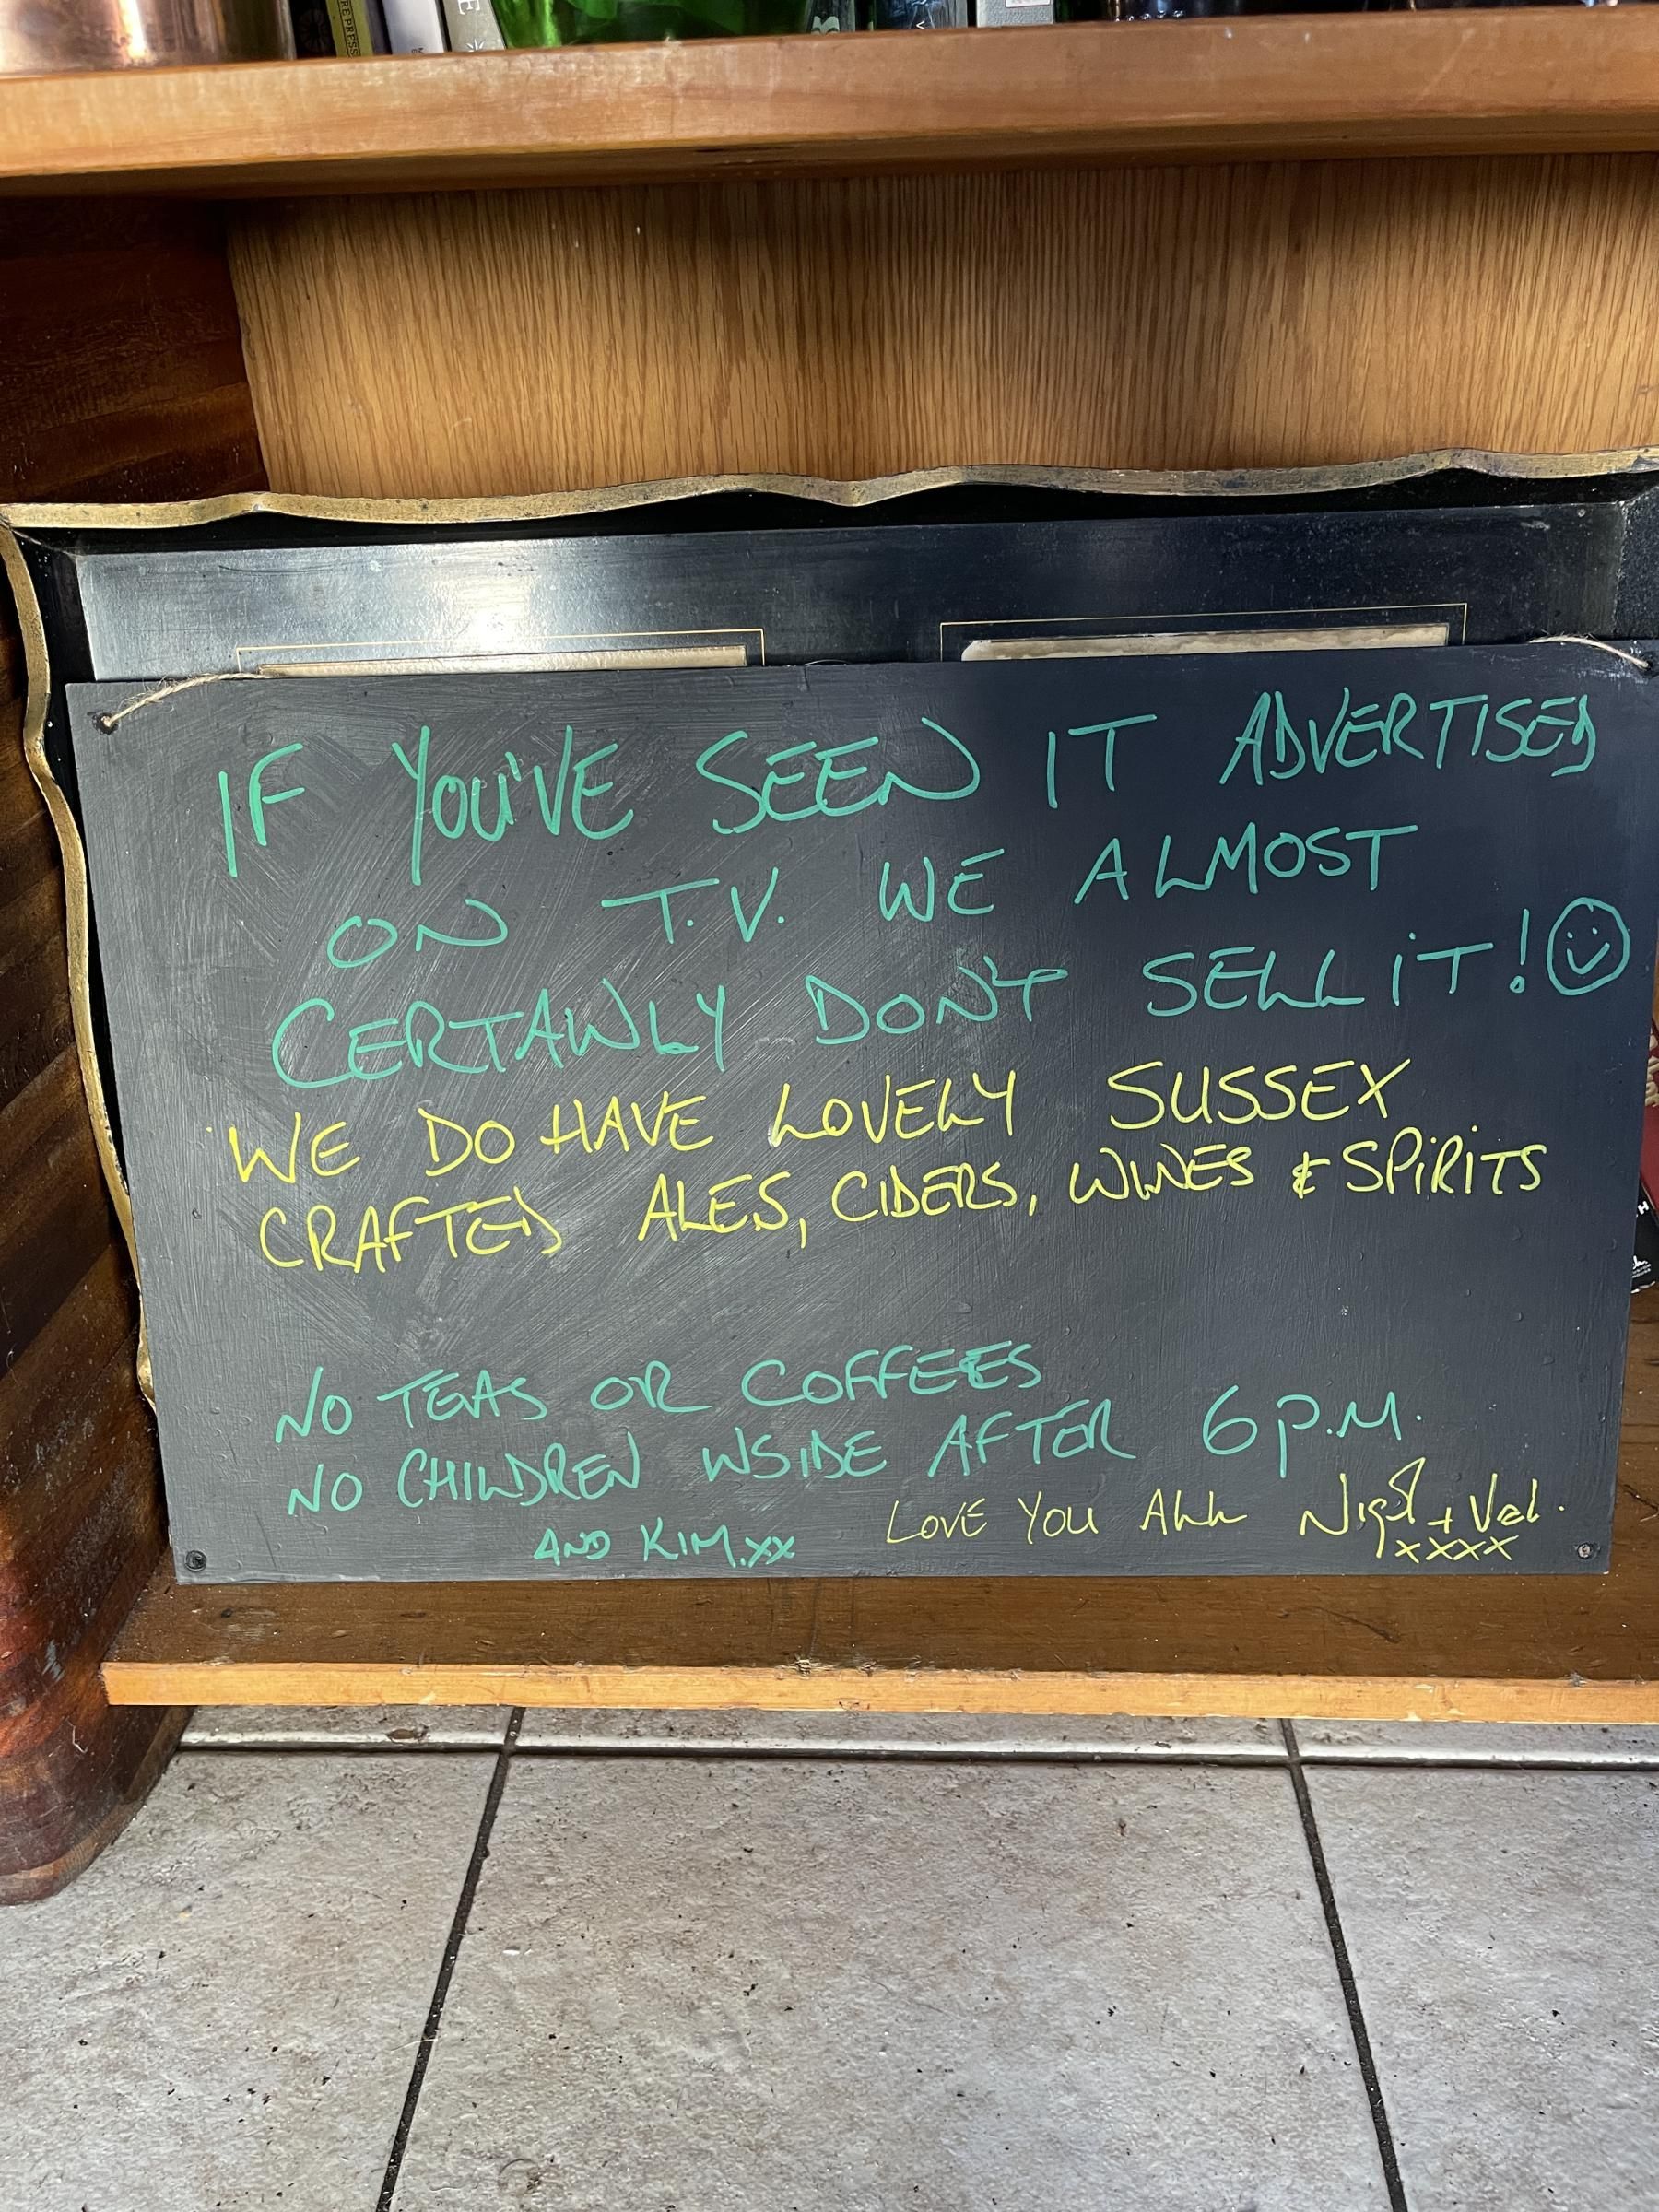 RE PRESS
IF YOU'VE SEEN IT ADVERTISED
ON T.V. WE ALMOST
CERTAINLY DON'T SELL IT!
WE DO HAVE LOVELY SUSSEX
CRAFTED ALES, CIDERS, WINES & SPIRITS
NO TEAS OR COFFEES
NO CHILDREN INSIDE AFTER 6 P.M.
LOVE YOU ALL Nigel + Val.
AND KIM.xx xxxx